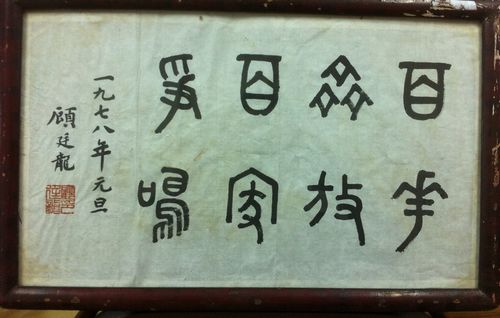 百華
齊放
百家
爭鳴
一九七八年元旦
顧廷龍